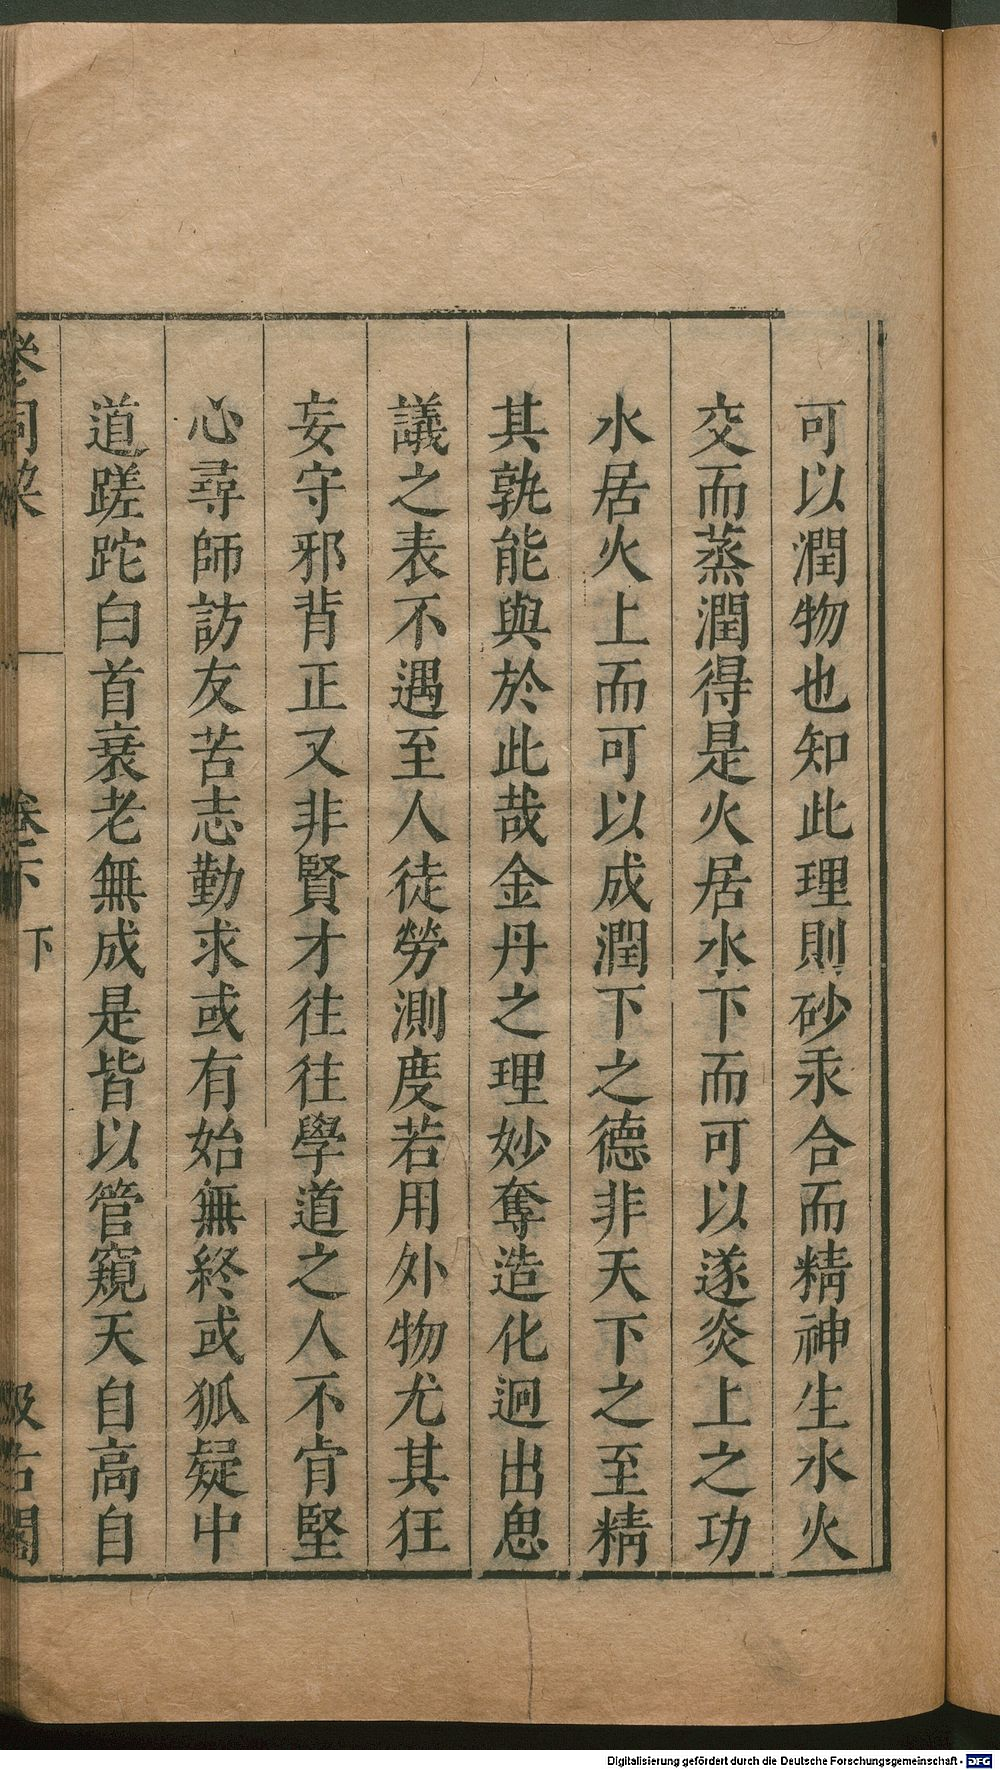 可以潤物也知此理則砂汞合而精神生水火
交而蒸潤得是火居水下而可以遂炎上之功
水居火上而可以成潤下之德非天下之至精
其孰能與於此哉金丹之理妙奪造化迥出思
議之表不遇至人徒勞測度若用外物尤其狂
妄守邪背正又非賢才往往學道之人不肯堅
心尋師訪友苦志勤求或有始無終或狐疑中
道蹉跎白首衰老無成是皆以管窺天自高自
卷下
下
汲古閣
Digitalisierung gefördert durch die Deutsche Forschungsgemeinschaft - DFG